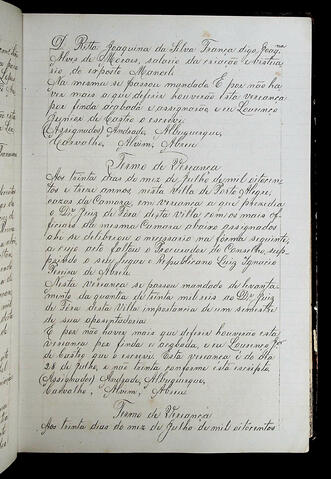 D. Rita Joaquina da Silva França digo, Joaq.na
Alves de Moraes, salario da criação
rio do exposto Manoel
Na mesma se passou mandado. E por não ha
ver mais o que deferir houverão esta vereança
por finda acabada e assignarão e eu Lourenço
Junior de Castro o escrevi
(Assignados) Andrade, Albuquerque,
Carvalho, Alvim, Abreu
Termo de Vereança
Aos trinta dias do mez de Julho de mil oitocen
tos e treze annos, nesta Villa de Porto Alegre,
cazas da Camara, em vereança a que presedio
o Dr. Juiz de Fóra desta villa com os mais of
ficiaes da mesma Camara abaixo assignados
ahi se delibrou o necessario na forma seguinte,
a cujo acto faltou o Procurador do Conselho, sup
prindo o seu lugar o Republicano Luiz Ignacio
Pereira de Abreu.
Nesta vereança se passou mandado de levanta
mento da quantia de trinta mil reis ao Dr. Juiz
de Fóra desta Villa importancia de um semestre
de sua aposentadoria
E por não haver mais que deferir houverão esta
vereança por finda e acabada, e eu Lourenço Jor
de Castro que o escrevi. Esta vereança é do dia
28 de Julho, e não trinta conforme está escripto
(Assignados) Andrade, Albuquerque,
Carvalho, Alvim, Abreu
Termo de Vereança
Aos trinta dias do mez de Julho de mil oitocentos